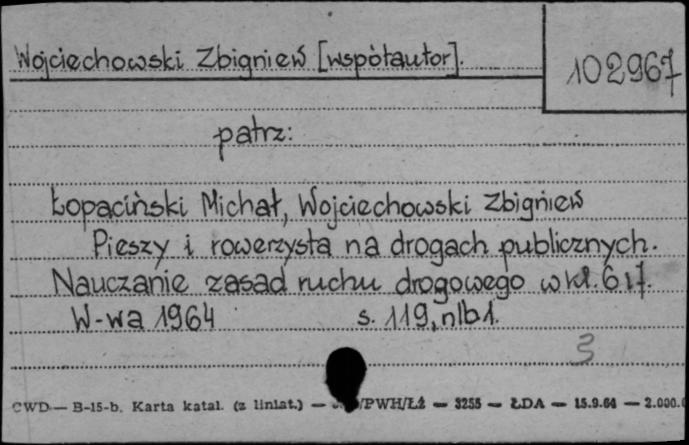 Wojciechowski Zbigniew [współautor].
102967
patrz:
Łopaciński Michał, Wojciechowski Zbigniew
Pieszy i rowerzysta na drogach publicznych.
Nauczanie zasad ruchu drogowego w kl. 6 i 7.
W-wa 1964 s. 119, nlb 1.
3
CWD — B-15-b. Karta katal. (z liniat.) — /PWH/Łż — 3255 — ŁDA — 15.9.64 — 2.000.